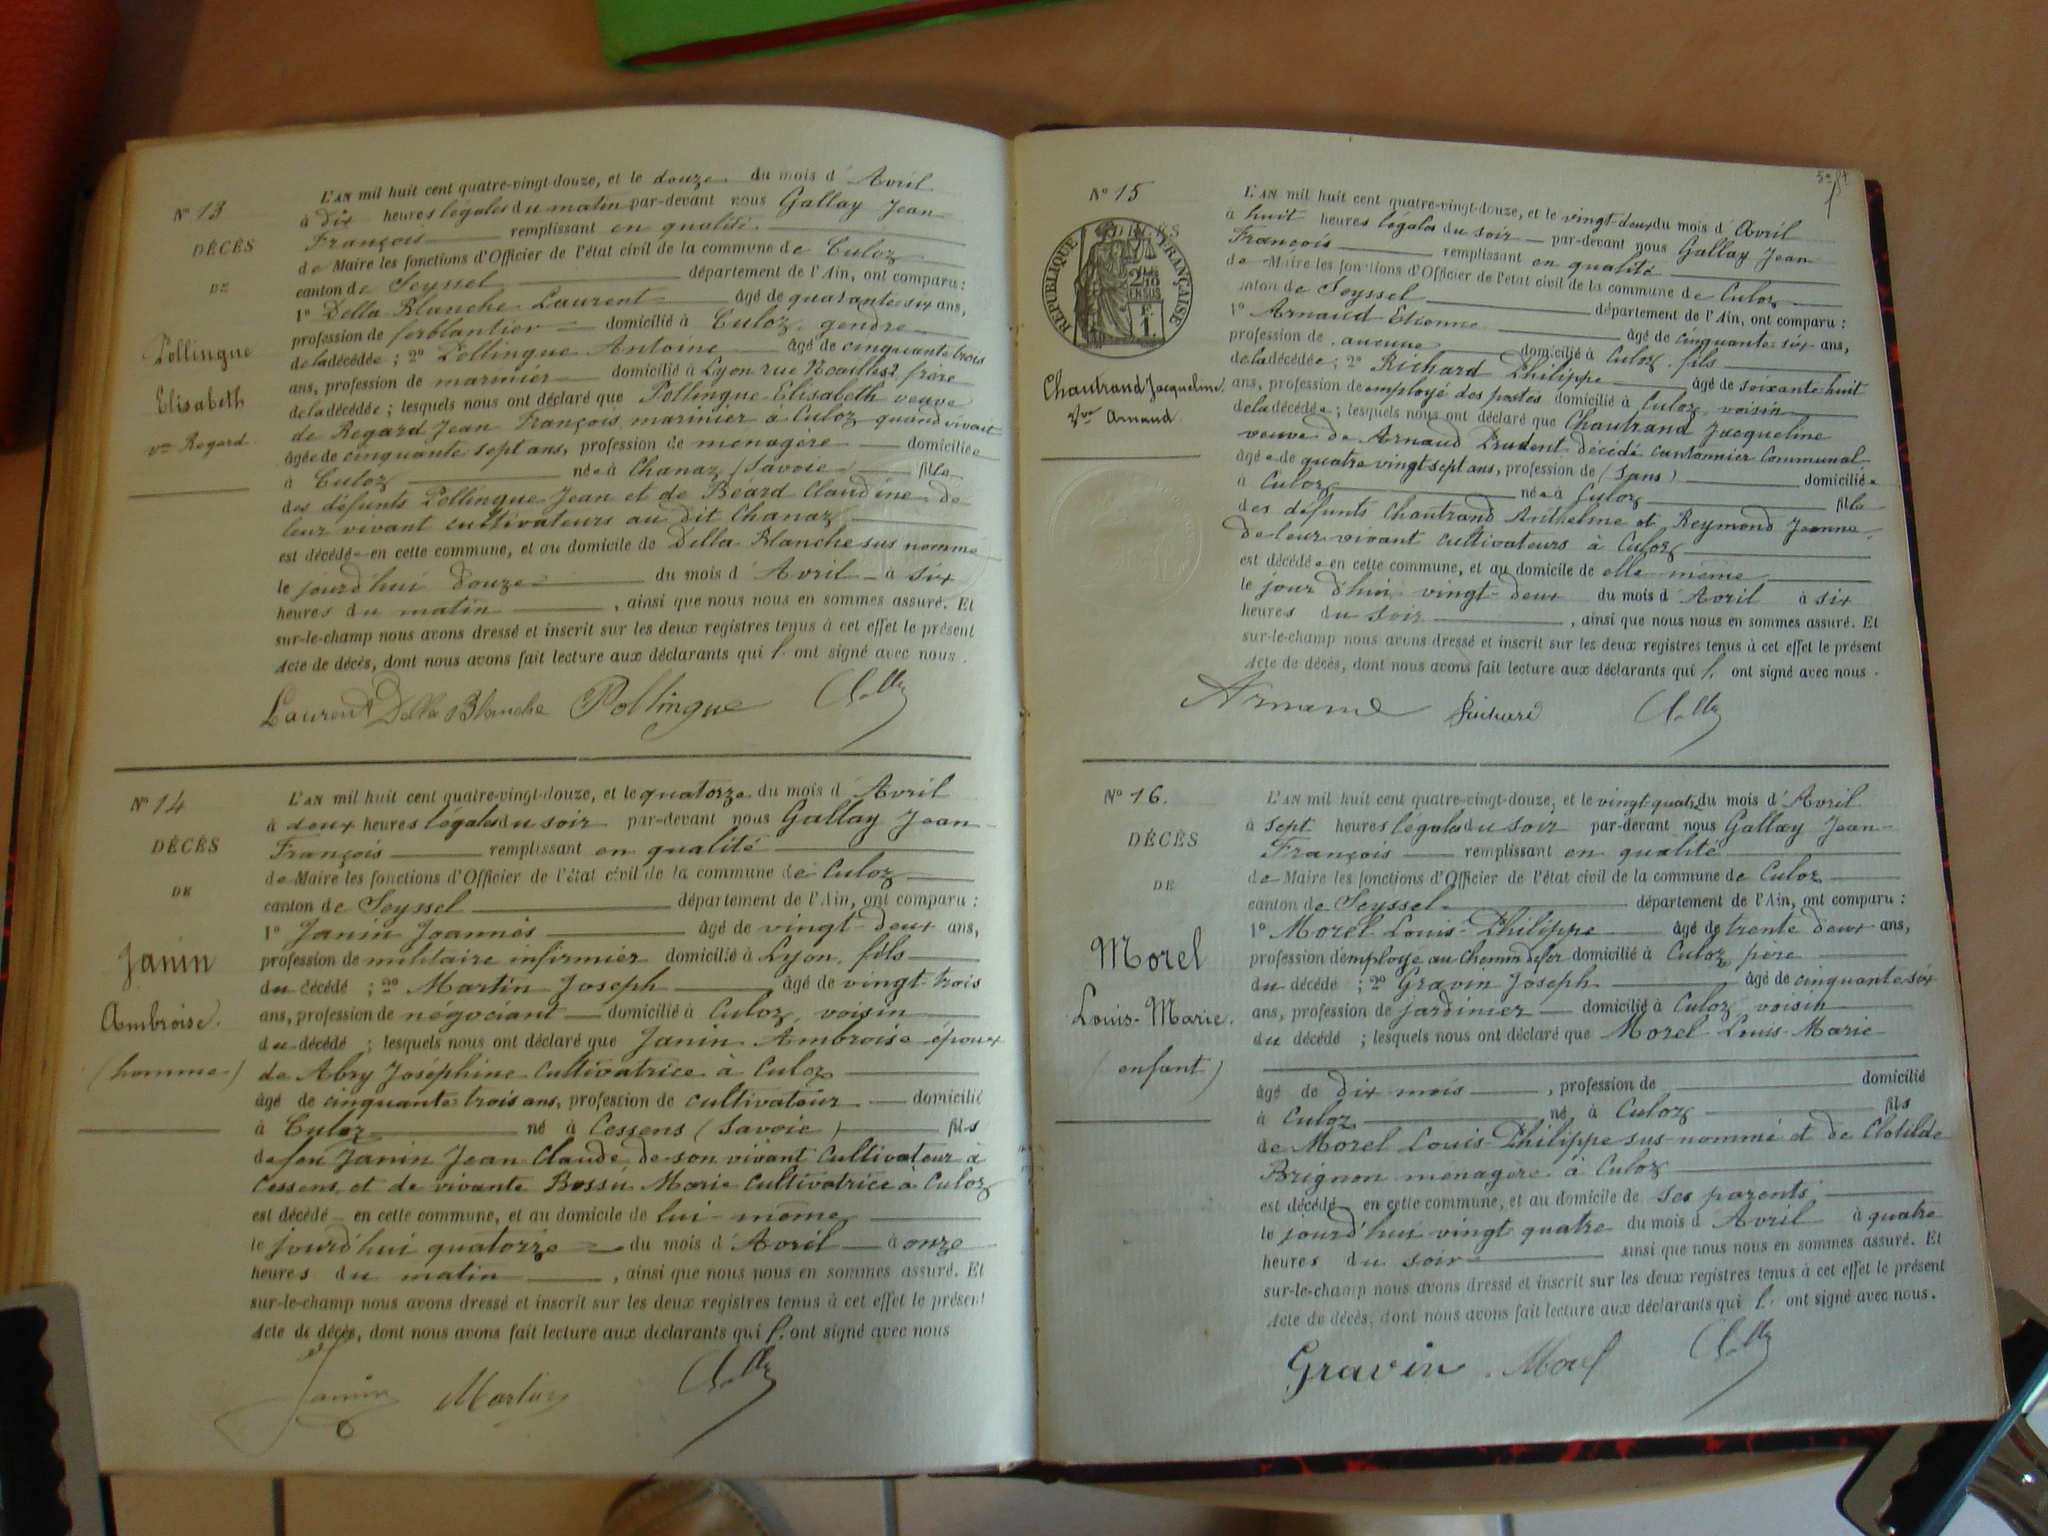 N° 13
DÉCÈS
DE
Pollingue
Elisabeth
vve Regard
L'AN mil huit cent quatre-vingt-douze, et le douze du mois d'Avril
à dix heures légales du matin par-devant nous Gallay Jean-
François remplissant en qualité
de Maire les fonctions d'Officier de l'état civil de la commune de Culoz
canton de Seyssel département de l'Ain, ont comparu :
1° Della Blanche Laurent âgé de quarante six ans,
profession de ferblantier domicilié à Culoz, gendre
de la décédée ; 2° Pollingue Antoine âgé de cinquante trois
ans, profession de marinier domicilié à Lyon rue Noailles 2 frère
de la décédée ; lesquels nous ont déclaré que Pollingue Elisabeth veuve
de Regard Jean François marinier à Culoz quand vivait
âgée de cinquante sept ans, profession de ménagère domiciliée
à Culoz née à Chanaz (Savoie) fille
des défunts Pollingue Jean et de Béard Claudine de
leur vivant cultivateurs au dit Chanaz
est décédée en cette commune, et au domicile de Della Blanche sus nommé
le jourd'hui douze du mois d'Avril à six
heures du matin , ainsi que nous nous en sommes assuré. Et
sur-le-champ nous avons dressé et inscrit sur les deux registres tenus à cet effet le présent
Acte de décès, dont nous avons fait lecture aux déclarants qui l'ont signé avec nous.
Laurent Della Blanche Pollingue
N° 14
DÉCÈS
DE
Janin
Ambroise.
(homme)
L'AN mil huit cent quatre-vingt-douze, et le quatorze du mois d'Avril
à deux heures légales du soir par-devant nous Gallay Jean-
François remplissant en qualité
de Maire les fonctions d'Officier de l'état civil de la commune de Culoz
canton de Seyssel département de l'Ain, ont comparu :
1° Janin Joannès âgé de vingt-deux ans,
profession de militaire infirmier domicilié à Lyon, fils
du décédé ; 2° Martin Joseph âgé de vingt-trois
ans, profession de négociant domicilié à Culoz, voisin
du décédé ; lesquels nous ont déclaré que Janin Ambroise époux
de Abry Joséphine Cultivatrice à Culoz
âgé de cinquante-trois ans, profession de cultivateur domicilié
à Culoz né à Cessens (Savoie) fils
de feu Janin Jean Claude de son vivant Cultivateur à
Cessens et de vivante Bossu Marie Cultivatrice à Culoz
est décédé en cette commune, et au domicile de lui-même
le jourd'hui quatorze du mois d'Avril à onze
heures du matin , ainsi que nous nous en sommes assuré. Et
sur-le-champ nous avons dressé et inscrit sur les deux registres tenus à cet effet le présent
Acte de décès, dont nous avons fait lecture aux déclarants qui l'ont signé avec nous
Janin Martin
N° 15
DÉCÈS
RÉPUBLIQUE FRANÇAISE
Chautrand Jacqueline
Vve Arnaud
L'AN mil huit cent quatre-vingt-douze, et le vingt-deux du mois d'Avril
à huit heures légales du soir par-devant nous Gallay Jean
François remplissant en qualité
de Maire les fonctions d'Officier de l'état civil de la commune de Culoz
canton de Seyssel département de l'Ain, ont comparu :
1° Arnaud Etienne âgé de cinquante-six ans,
profession de aucune domicilié à Culoz, fils
de la décédée ; 2° Richard Philippe âgé de soixante-huit
ans, profession de employé des postes domicilié à Culoz, voisin
de la décédée ; lesquels nous ont déclaré que Chautrand Jacqueline
veuve de Arnaud Prudent décédé cantonnier communal
âgée de quatre vingt sept ans, profession de (sans) domiciliée
à Culoz née à Culoz fille
des défunts Chautrand Anthelme et Reymond Jeanne,
de leur vivant cultivateurs à Culoz
est décédée en cette commune, et au domicile de elle-même
le jour d'hui vingt-deux du mois d'Avril à six
heures du soir , ainsi que nous nous en sommes assuré. Et
sur-le-champ nous avons dressé et inscrit sur les deux registres tenus à cet effet le présent
Acte de décès, dont nous avons fait lecture aux déclarants qui l'ont signé avec nous.
N° 16.
DÉCÈS
DE
Morel
Louis-Marie.
(enfant)
L'AN mil huit cent quatre-vingt-douze, et le vingt-quatre du mois d'Avril
à sept heures légales du soir par-devant nous Gallay Jean-
François remplissant en qualité
de Maire les fonctions d'Officier de l'état civil de la commune de Culoz
canton de Seyssel département de l'Ain, ont comparu :
1° Morel Louis-Philippe âgé de trente deux ans,
profession d'employé au Chemin de fer domicilié à Culoz, père
du décédé ; 2° Gravin Joseph âgé de cinquante six
ans, profession de jardinier domicilié à Culoz voisin
du décédé ; lesquels nous ont déclaré que Morel Louis-Marie
âgé de dix mois , profession de domicilié
à Culoz né à Culoz fils
de Morel Louis-Philippe sus-nommé et de Clotilde
Brignon ménagère à Culoz
est décédé en cette commune, et au domicile de ses parents,
le jourd'hui vingt quatre du mois d'Avril à quatre
heures du soir ainsi que nous nous en sommes assuré. Et
sur-le-champ nous avons dressé et inscrit sur les deux registres tenus à cet effet le présent
Acte de décès, dont nous avons fait lecture aux déclarants qui l'ont signé avec nous.
Gravin Morel